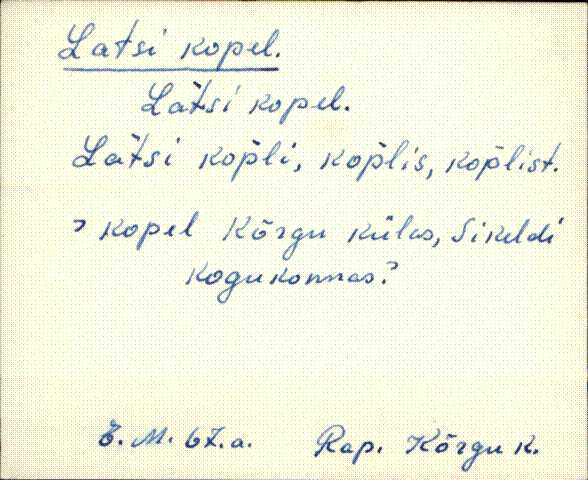 Latsi kopel.
Lat̀si kopel.
Lat̀si kop̀li, kop̀lis, kop̀list.
? kopel Kõrgu külas, Sikeldi
kogukonnas?
E. M. 67. a. Rap. Kõrgu k.